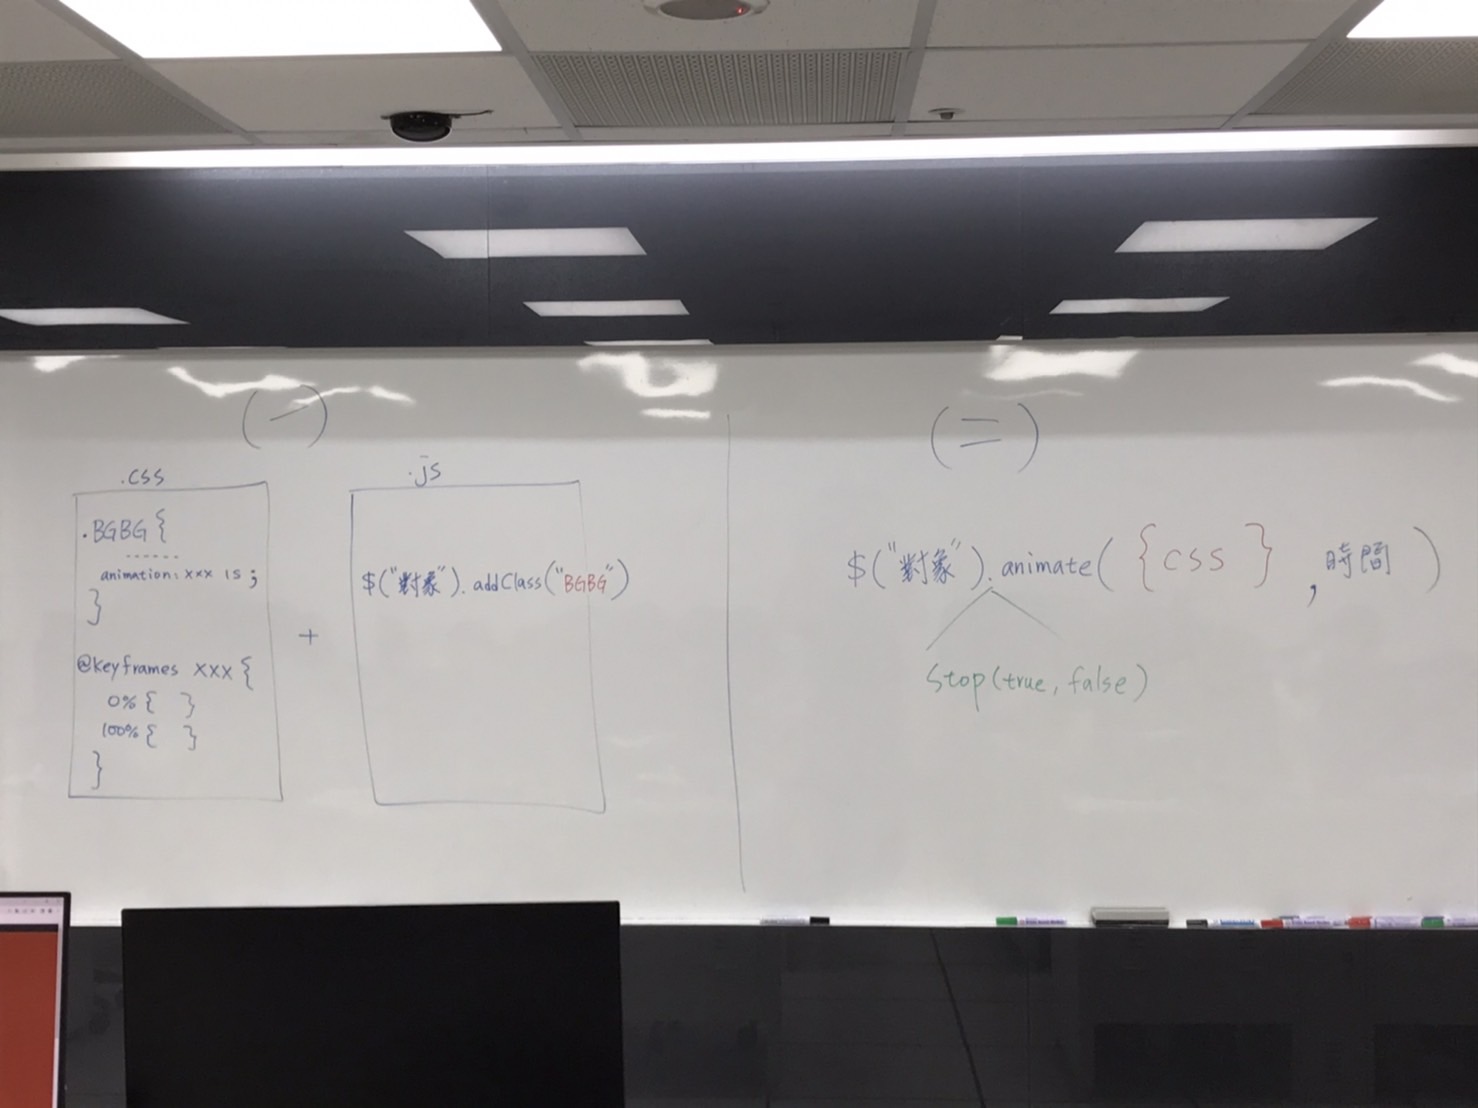 (一)
.css
.BGBG {
------
animation: xxx 1s ;
}
@keyframes xxx {
0% { }
100% { }
}
+
.js
$("對象"). addClass("BGBG")
(二)
$("對象").animate( { css } , 時間 )
stop(true, false)